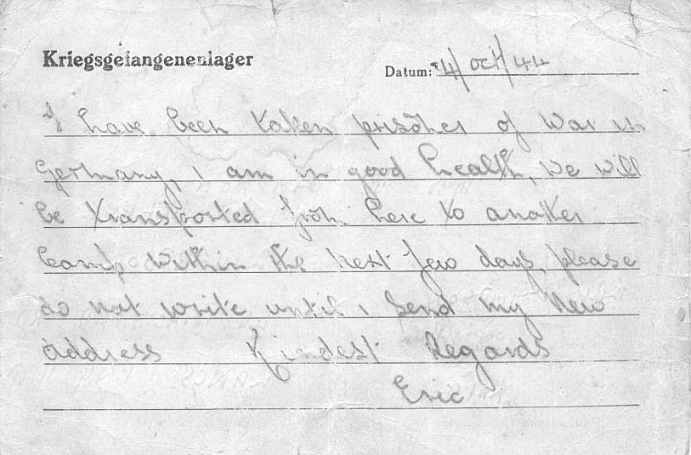 Kriegsgefangenenlager
Datum: 4/Oct/44
I have been taken prisoner of War in
Germany, I am in good health, we will
be transported from here to another
camp within the next few days, please
do not write until I send my new
address Kindest Regards
Eric